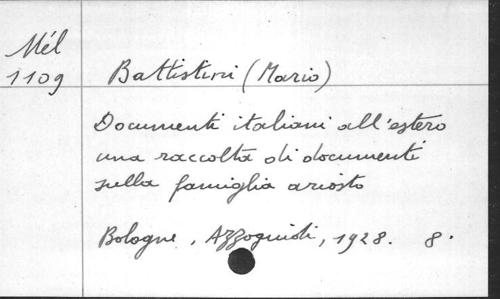 Mél
1109
Battistini (Mario)
Documenti italiani all'estero
una raccolta di documenti
sulla famiglia ariosto
Bologne, Azzoguidi, 1928. 8°